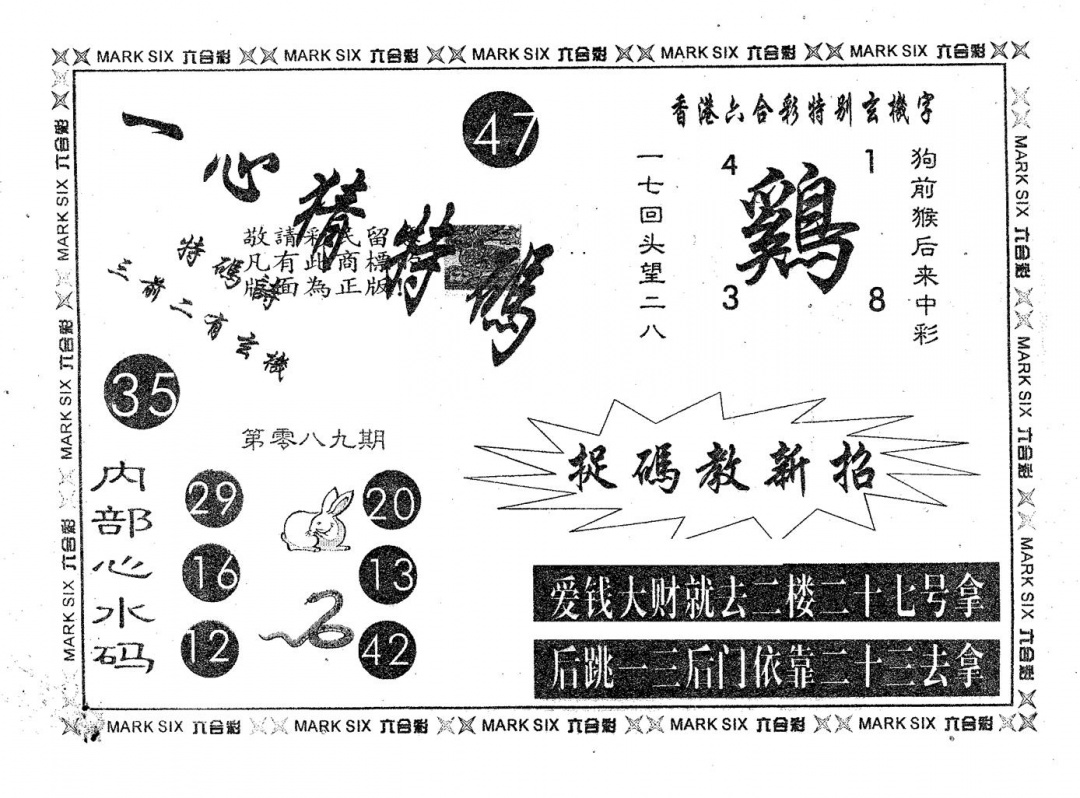 MARK SIX 六合彩 MARK SIX 六合彩 MARK SIX 六合彩 MARK SIX 六合彩 MARK SIX 六合彩
MARK SIX 六合彩 MARK SIX 六合彩 MARK SIX 六合彩
MARK SIX 六合彩 MARK SIX 六合彩 MARK SIX 六合彩
一心猜特碼
47
敬請彩民留
凡有此商標
版面為正版!
特碼詩
三前二有玄機
35
第零八九期
内部心水码
29
20
16
13
12
42
香港六合彩特别玄機字
一七回头望二八
4
1
鷄
3
8
狗前猴后来中彩
捉碼教新招
爱钱大财就去二楼二十七号拿
后跳一三后门依靠二十三去拿
MARK SIX 六合彩 MARK SIX 六合彩 MARK SIX 六合彩 MARK SIX 六合彩 MARK SIX 六合彩